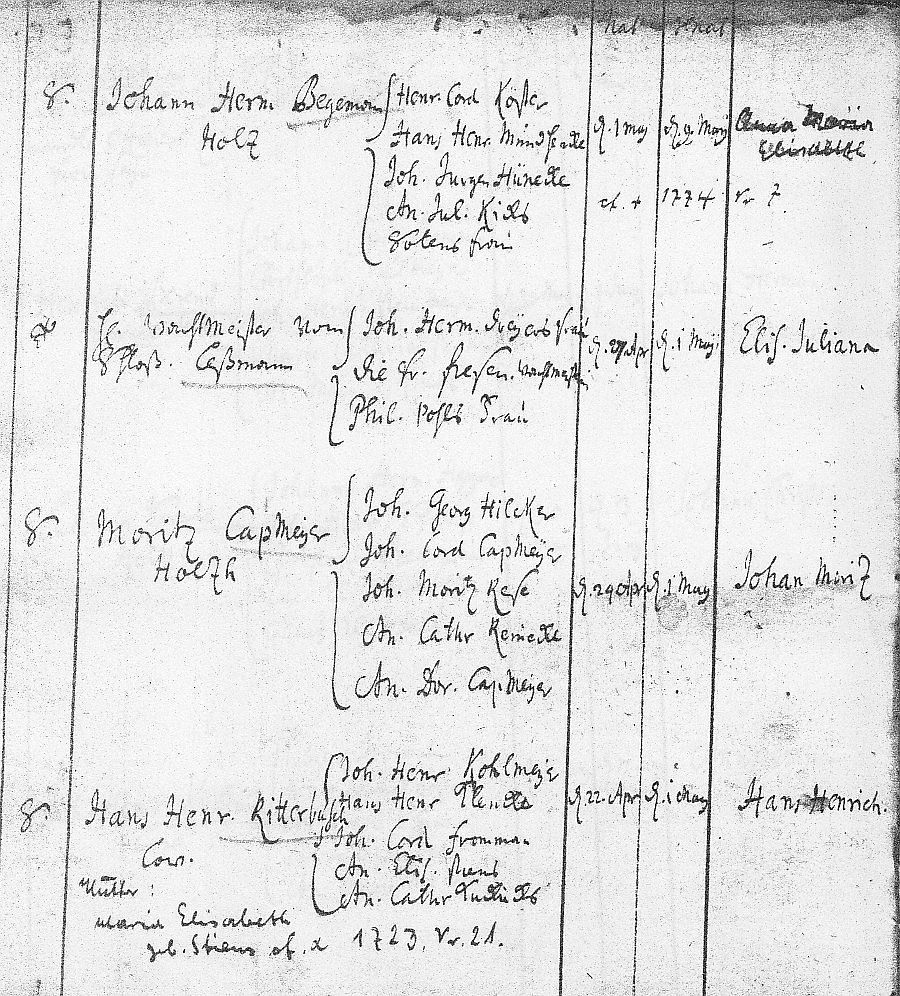 Nat
8. Johann Herm Begeman
Holz
Henr. Cord Köster
Hans Henr
Joh. Jurgen Hünecke
An. Jul.
d. 1 May d. 9 May
Anna Maria
Elisabeth
cf. + 1774 Nr 7
Wachtmeister vom
Schloß.
Joh. Herm. Frau
die Fr.
Phil. Pohls Frau
d. 27 Apr d. 1 May
Elis. Juliana
8. Moritz CapMeyer
Holzh
Joh. Georg Hilcker
Joh. Cord CapMeyer
Joh. Moritz Kese
An. Cathr Reinecke
An. Dor. CapMeyer
d. 29 Apr d. 1 May
Johan Moritz
8. Hans Henr. Ritterbusch
Cow.
Mutter:
Maria Elisabeth
geb. cf. 1723, Nr. 21.
Joh. Henr. Kohlmeyer
Hans Henr
Joh. Cord Fromman
An. Elis.
An. Cathr
d. 22. Apr d. 1 May
Hans Henrich.